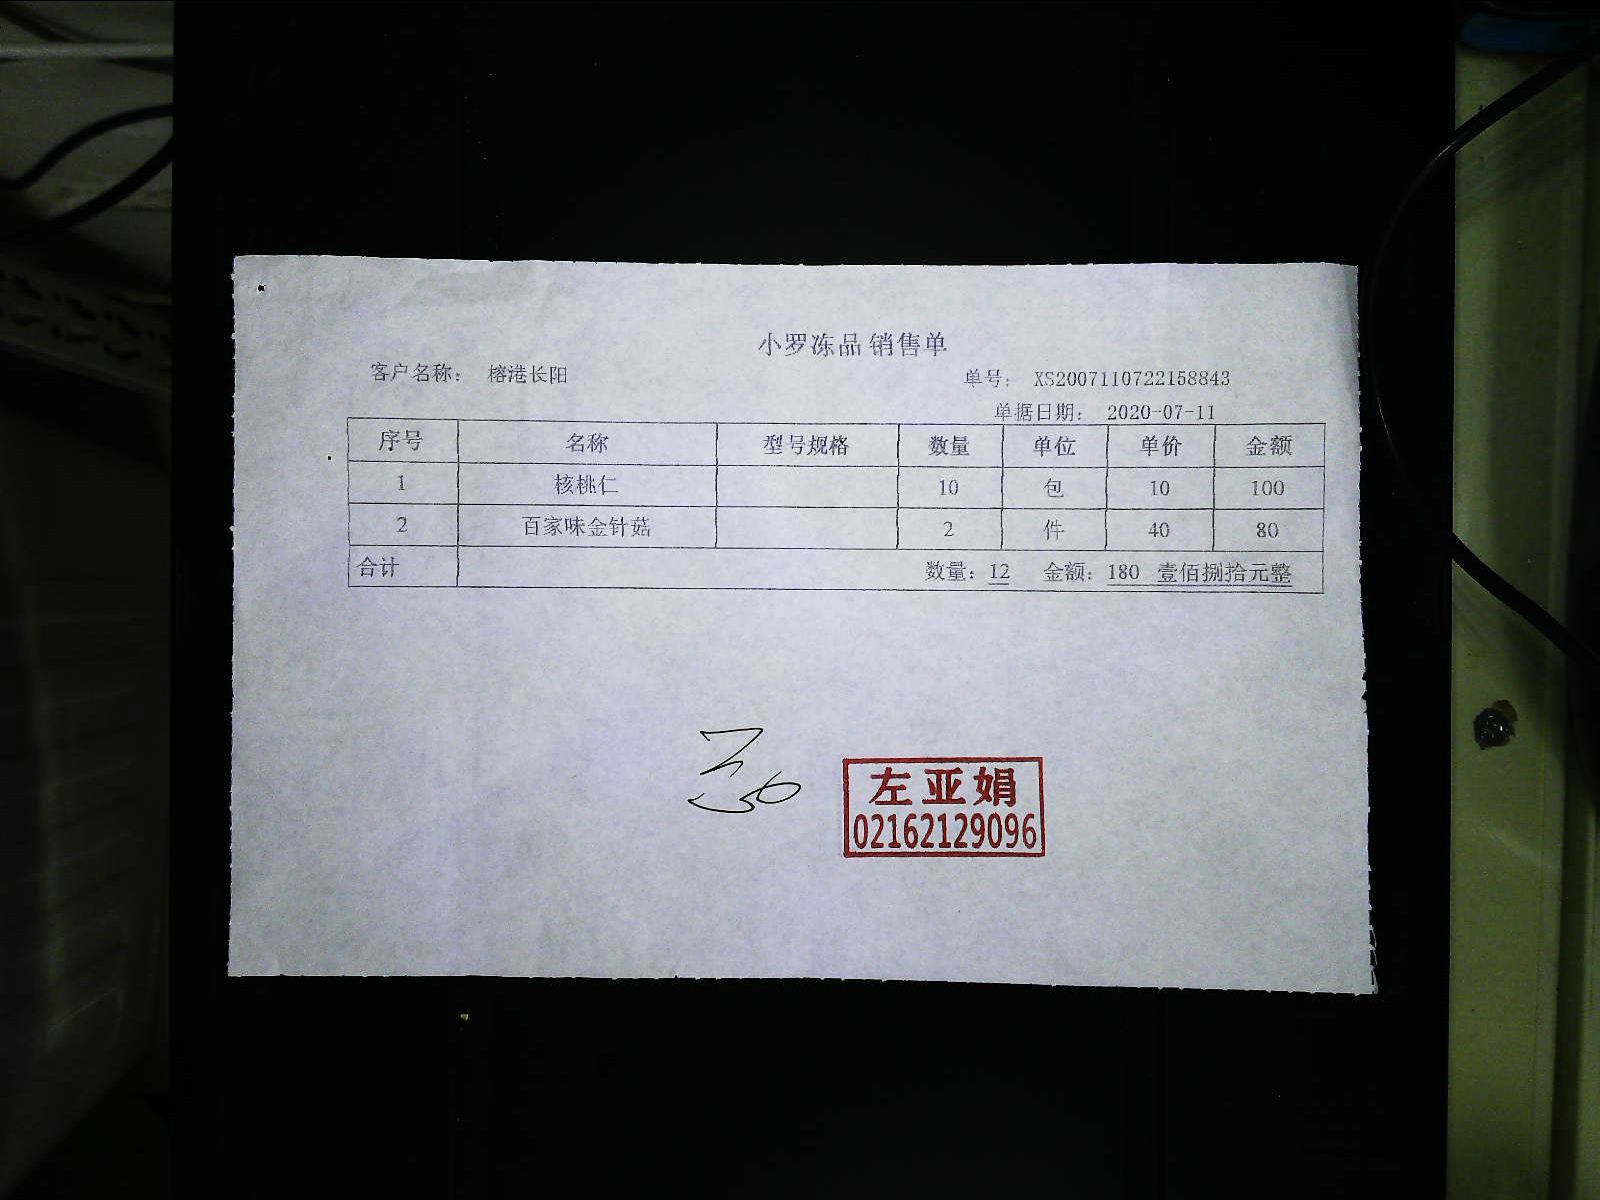 小罗冻品 销售单
客户名称： 榕港长阳 单号： XS2007110722158843
单据日期： 2020-07-11
序号 名称 型号规格 数量 单位 单价 金额
1 核桃仁 10 包 10 100
2 百家味金针菇 2 件 40 80
合计 数量：12 金额：180 壹佰捌拾元整
左亚娟
02162129096